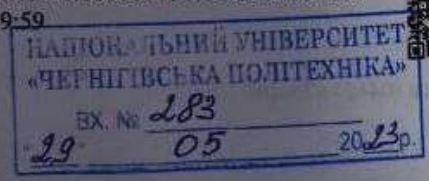 9:59
НАЦІОНАЛЬНИЙ УНІВЕРСИТЕТ
«ЧЕРНІГІВСЬКА ПОЛІТЕХНІКА»
ВХ. № 283
"29" 05 2023р.